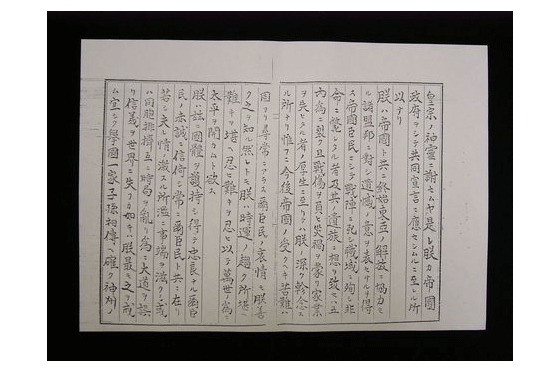 皇宗ノ神靈ニ謝セムヤ是レ朕カ帝國
政府ヲシテ共同宣言ニ應セシムルニ至レル所
以ナリ
朕ハ帝國ト共ニ終始東亞ノ解放ニ協力セ
ル諸盟邦ニ對シ遺憾ノ意ヲ表セサルヲ得
ス帝國臣民ニシテ戰陣ニ死シ職域ニ殉シ非
命ニ斃レタル者及其ノ遺族ニ想ヲ致セハ五
內爲ニ裂ク且戰傷ヲ負ヒ災禍ヲ蒙リ家業
ヲ失ヒタル者ノ厚生ニ至リテハ朕ノ深ク軫念ス
ル所ナリ惟フニ今後帝國ノ受クヘキ苦難ハ
固ヨリ尋常ニアラス爾臣民ノ衷情モ朕善
ク之ヲ知ル然レトモ朕ハ時運ノ趨ク所堪ヘ
難キヲ堪ヘ忍ヒ難キヲ忍ヒ以テ萬世ノ爲ニ
太平ヲ開カムト欲ス
朕ハ玆ニ國體ヲ護持シ得テ忠良ナル爾臣
民ノ赤誠ニ信倚シ常ニ爾臣民ト共ニ在リ
若シ夫レ情ノ激スル所濫ニ事端ヲ滋クシ或
ハ同胞排擠互ニ時局ヲ亂リ爲ニ大道ヲ誤
リ信義ヲ世界ニ失フカ如キハ朕最モ之ヲ戒
ム宜シク擧國一家子孫相傳ヘ確ク神州ノ